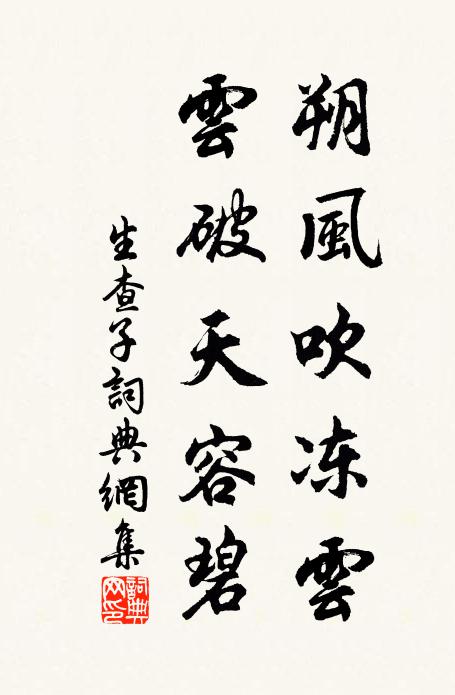 朔風吹冻雲
雲破天容碧
生查子詞典網集
詞典网印